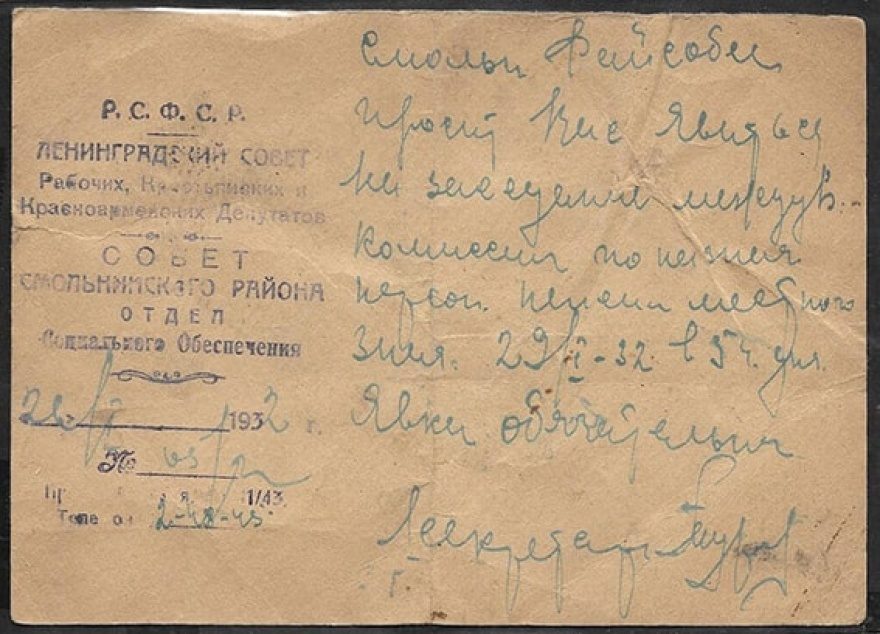 Р. С. Ф. С. Р.
ЛЕНИНГРАДСКИЙ СОВЕТ
Рабочих, Крестьянских и
Красноармейских Депутатов
СОВЕТ
СМОЛЬНИНСКОГО РАЙОНА
ОТДЕЛ
Социального Обеспечения
1932 г.
№
11/43
2-48-45
Смольн Райсобес
просит Вас явиться
на заседание междув.
комиссии по назнач
персон. пенсии местного
знач. 29/I-32 в 5 ч. дня.
Явка обязательна
Секретарь